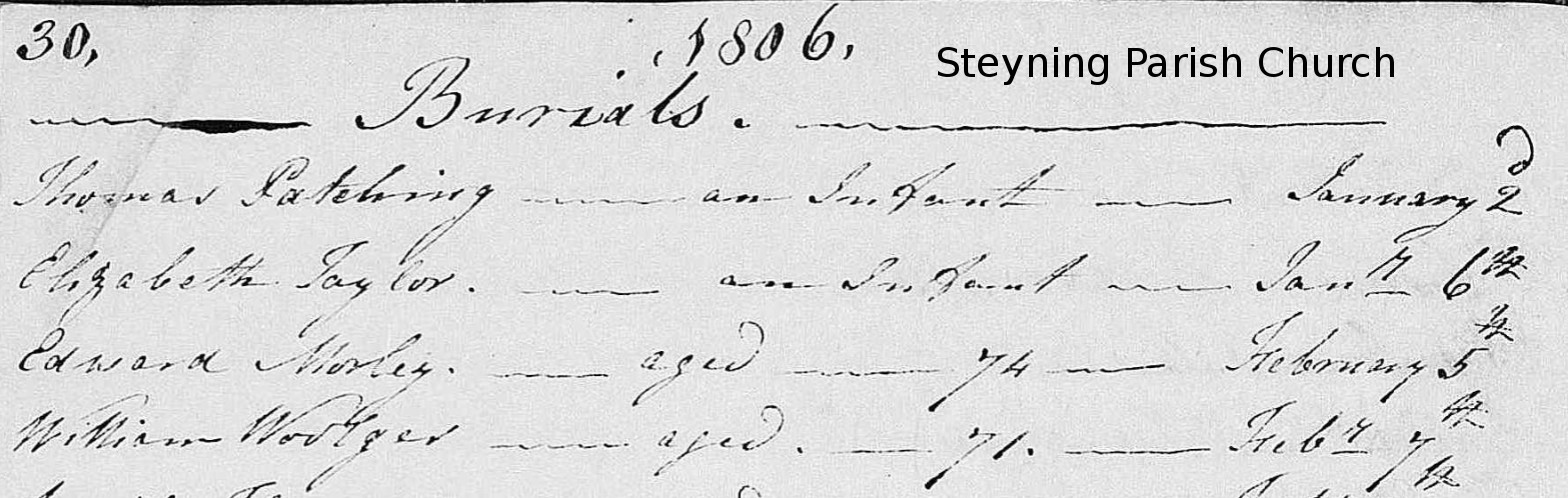 30, 1806. Steyning Parish Church
Burials.
Thomas Patching an Infant January 2d
Elizabeth Taylor. an Infant Jany 6th
Edward Morley. aged 74 February 5th
William Woolger aged. 71. Feby 7th